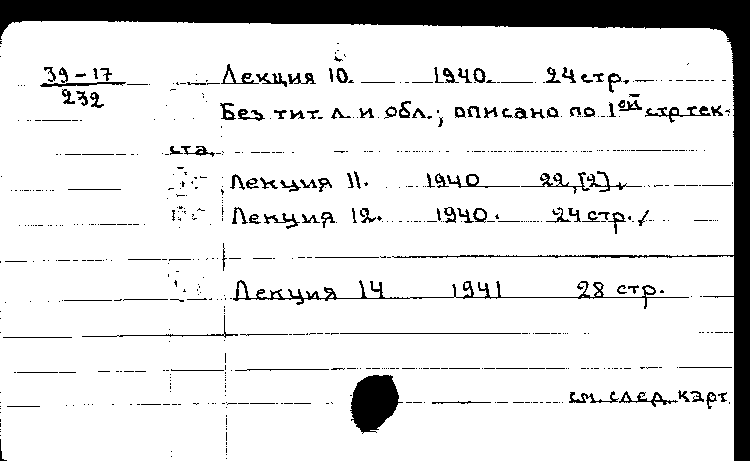 39-17
232
Лекция 10. 1940. 24 стр.
Без тит. л. и обл.; описано по 1ей стр. тек-
ста.
Лекция 11. 1940 22, [2].
Лекция 12. 1940. 24 стр.
Лекция 14 1941 28 стр.
см. след. карт